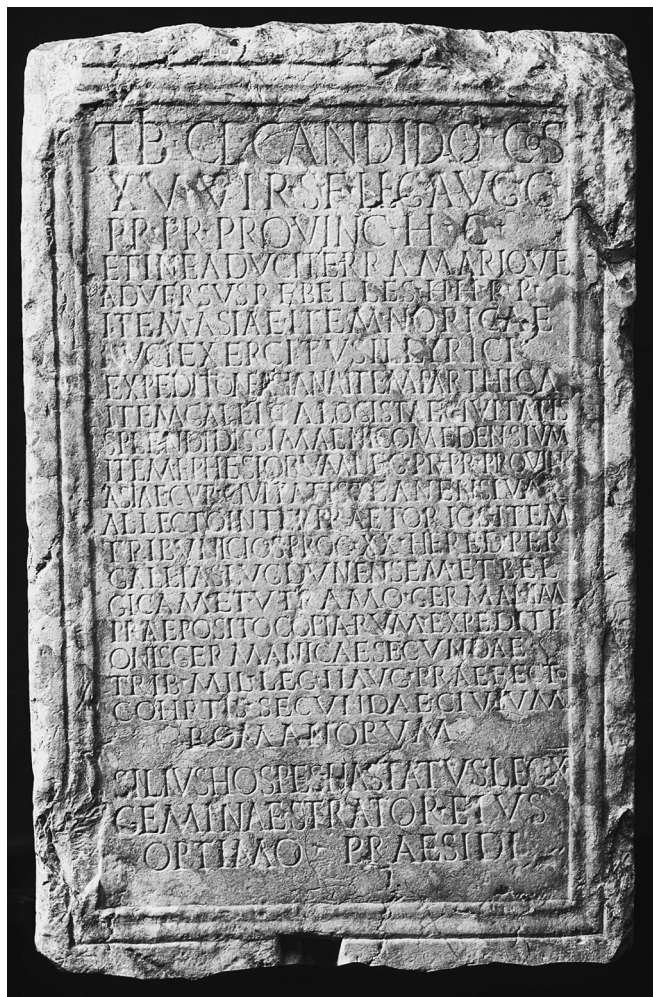 TIB·CL·CANDIDO·COS
XV·VIR·S·F·LEG·AVGG
PR·PR·PROVINC·H·C·
ET IN EA DVCI TERRA MARIQVE
ADVERSVS REBELLES HH·PR·
ITEM ASIAE ITEM NORICAE
DVCI EXERCITVS ILLYRICI
EXPEDITONE ASIANA ITEM PARTHICA
ITEM GALLICA LOGISTAE CIVITATIS
SPLENDIDISSIMAE NICOMEDENSIVM
ITEM EPHESIORVM LEG·PR·PR·PROVIN
ASIAE CVR CIVITATIS TEANENSIVM
ALLECTO INTER PRAETORIOS ITEM
TRIBVNICIOS PROC·XX·HERED PER
GALLIAS LVGDVNENSEM·ET BEL
GICAM·ET VTRAMQ·GERMANIAM
PRAEPOSITO COPIARVM·EXPEDITI
ONIS GERMANICAE SECVNDAE
TRIB·MIL·LEG·II AVG·PRAEFECT·
COHRTIS·SECVNDAE CIVIVM
ROMANORVM
SILIVS HOSPES HASTATVS LEG X
GEMINAE STRATOR·EIVS
OPTIMO · PRAESIDI